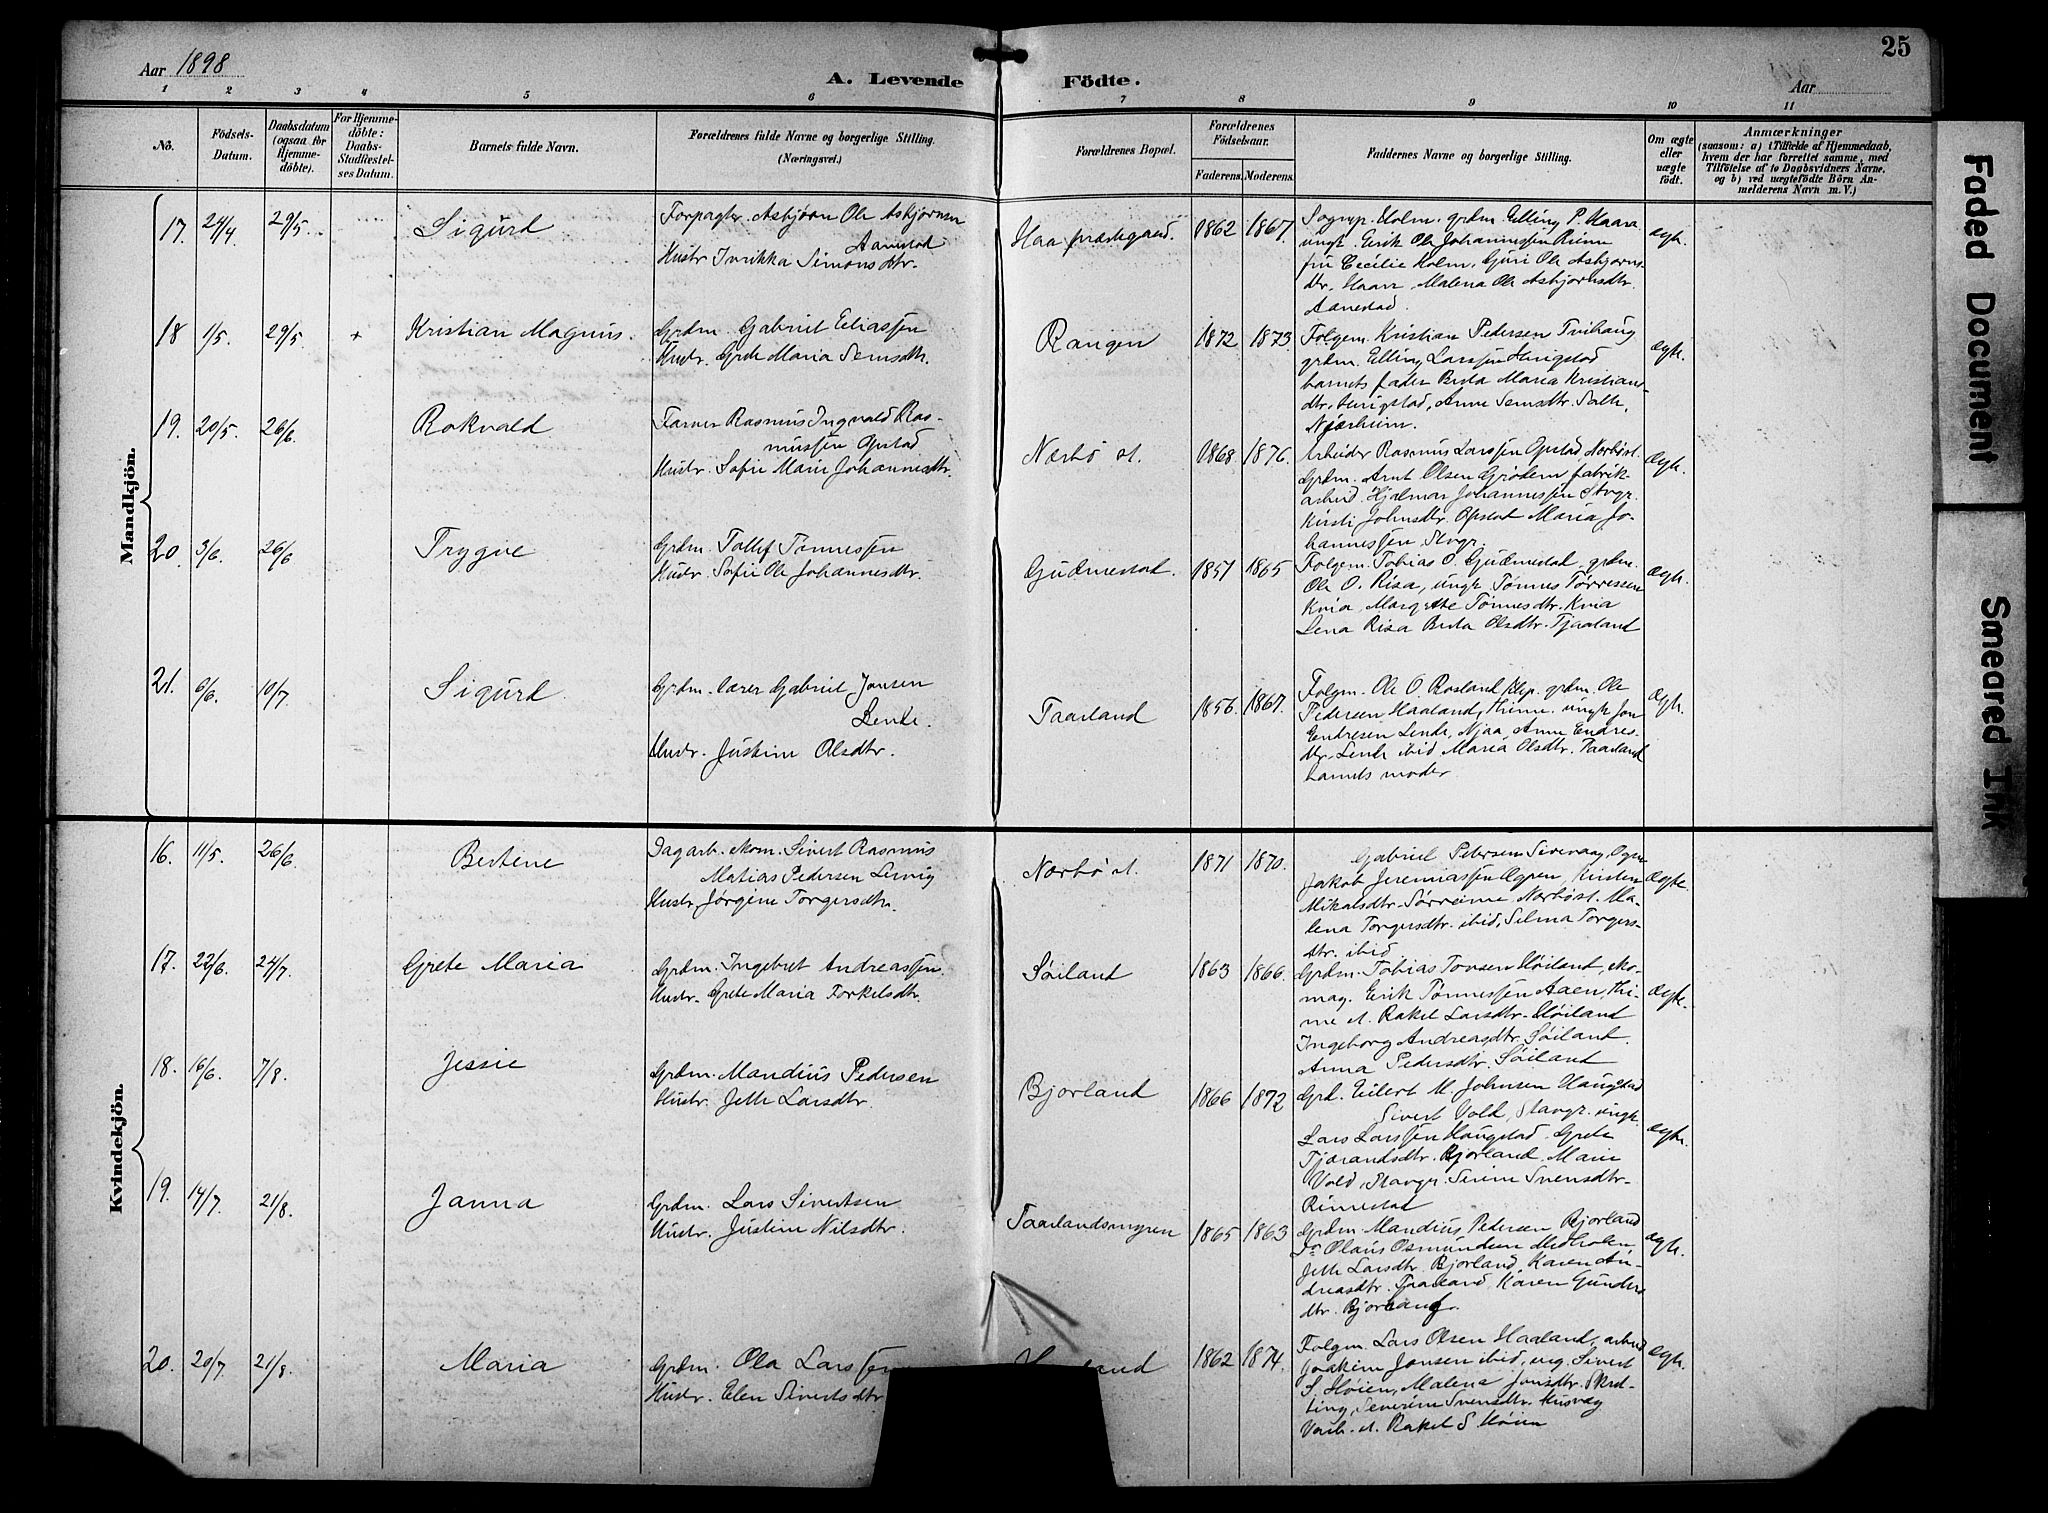 Aar 1898
25
A. Levende Födte.
Aar
1 2 3 4 5 6 7 8 9 10 11
No.
Födsels-
Datum.
Daabsdatum
(ogsaa for
Hjemme-
döbte).
For Hjemme-
döbte:
Daabs-
Stadfæstel-
ses Datum.
Barnets fulde Navn.
Forældrenes fulde Navne og borgerlige Stilling.
(Næringsvei.)
Forældrenes Bopæl.
Forældrenes
Födselsaar.
Faderens. Moderens.
Faddernes Navne og borgerlige Stilling.
Om ægte
eller
uægte
födt.
Anmærkninger
(saasom: a) i Tilfælde af Hjemmedaab,
hvem der har forrettet samme, med
Tilföielse af to Daabsvidners Navne,
og b) ved uægtefödte Börn An-
melderens Navn m. V.)
Mandkjön.
17. 24/4 29/5. Sigurd
Forpagter. Asbjørn Ols Asbjørnsen
Aanestad
Hustr Inrikka Simonsdtr.
Haa prædstegaard. 1862 1867.
Sogнpr. Holm. grdm. Elling P. Haara
ungk. Erik Ols Johannessen Riene
fru Cecilie Holm, Guri Ols Asbjørns-
dtr. Haar, Malena Ols Asbjørnsdtr.
Aanestad
ægte.
18 1/5. 29/5 + Kristian Magnus.
Grdm. Gabriel Eliassen
Hustr. Grete Maria Semsdtr.
Rangen 1872 1873
Folgem. Kristian Pedersen Tvihaug
grdm. Elling Larssen Hingstad
barnets fader Berta Maria Kristians-
dtr. Hingstad, Anne Semsdtr. Salte,
Njærheim.
ægte.
19. 20/5. 26/6. Rokvald
Farver Rasmus Ingvald Ras-
mussen Opstad
Hustr. Sofie Marie Johannesdtr.
Nærbø st. 1868. 1876.
Arbeider Rasmus Larssen Opstad Nærbø st.
Grdm. Arnt Olsen Grødem fabrik-
arbeid. Hjalmar Johannessen Stvgr.
Kirsti Johnsdtr. Opstad Maria Jo-
hannessen, Stvgr.
Ægte.
20. 3/6. 26/6 Trygve
Grdm. Tollef Tønnessen
Hustr. Sofie Ols Johannesdtr.
Gudmestad. 1851 1865
Folgem. Tobias O. Gudmestad, grdm.
Ole O. Risa, ungk. Tønnes Tørressen
Kvia, Margrethe Tønnesdtr. Kvia
Lena Risa Berta Olsdtr. Tjaaland
ægte.
21. 6/6. 10/7. Sigurd.
Grdm. lærer Gabriel Jonsen
Lende.
Hustr. Justine Olsdtr.
Taarland 1856. 1867.
Folgm. Ole O. Rosland Klep. grdm. Ole
Pedersen Haaland, Thime. ungk. Jon
Endresen Lende, Njaa, Anne Endres-
dtr. Lende ibid Maria Olsdtr. Taarland
barnets moder.
Ægte.
Kvindekjön.
16. 11/5. 26/6. Bertine
Dagarb. skom. Sivert Rasmus
Matias Pedersen Lervig
Hustr. Jørgene Torgersdtr.
Nærbø st. 1871 1870.
Gabriel Petersen Sirevaag, Ogne
Jakob Jeremiassen Ogren, Kirsten
Mikalsdtr. Sørreime, Nærbø st. Ma-
lena Torgersdtr. ibid, Selma Torgers-
dtr. ibid
ægte.
17. 22/6. 24/7. Grete Maria
Grdm. Ingebret Andreassen.
Hustr. Grete Maria Torkelsdtr.
Søiland 1863 1866.
Grdm. Tobias Torsen Høiland, sko-
mag. Erik Tønnessen Aaen, Thi-
me st. Rakel Larsdtr. Høiland
Ingeborg Andreasdtr. Søiland.
Anna Pedersdtr. Søiland
ægte.
18. 16/6. 7/8. Jessie
Grdm. Mandius Pedersen
Hustr. Jette Larsdtr.
Bjorland 1866 1872
Grd. Eilert M. Johnsen Haugstad
Sivert Vold, Stavgr. ungk.
Lars Larssen Haugstad. Grete
Tjærandsdtr. Bjorland. Marie
Vold, Stavgr. Serine Svensdtr.
Rimestad
ægte.
19. 14/7. 21/8. Janna
Grdm. Lars Sivertsen
Hustr. Justine Nilsdtr.
Taarlandsmyren 1865 1863
Grdm Mandius Pedersen Bjorland
do Olaus Osmundsen Medholen
Jette Larsdtr. Bjorland, Karen An-
dreasdtr. Taarland, Karen Gunders
dtr. Bjorland.
ægte.
20. 20/7 21/8. Maria
Grdm. Ola Larssen
Hustr. Elen Sivertsdtr
1862 1874.
Folgm. Lars Olsen Haaland, arbeid
Joakim Jonsen ibid, ung. Sivert
S. Høien, Malena Jonsdtr. Skret-
ting, Severine Svensdtr. Husvæg
Varh. st. Rakel S Høien
ægte.
Faded Document
Smeared Ink